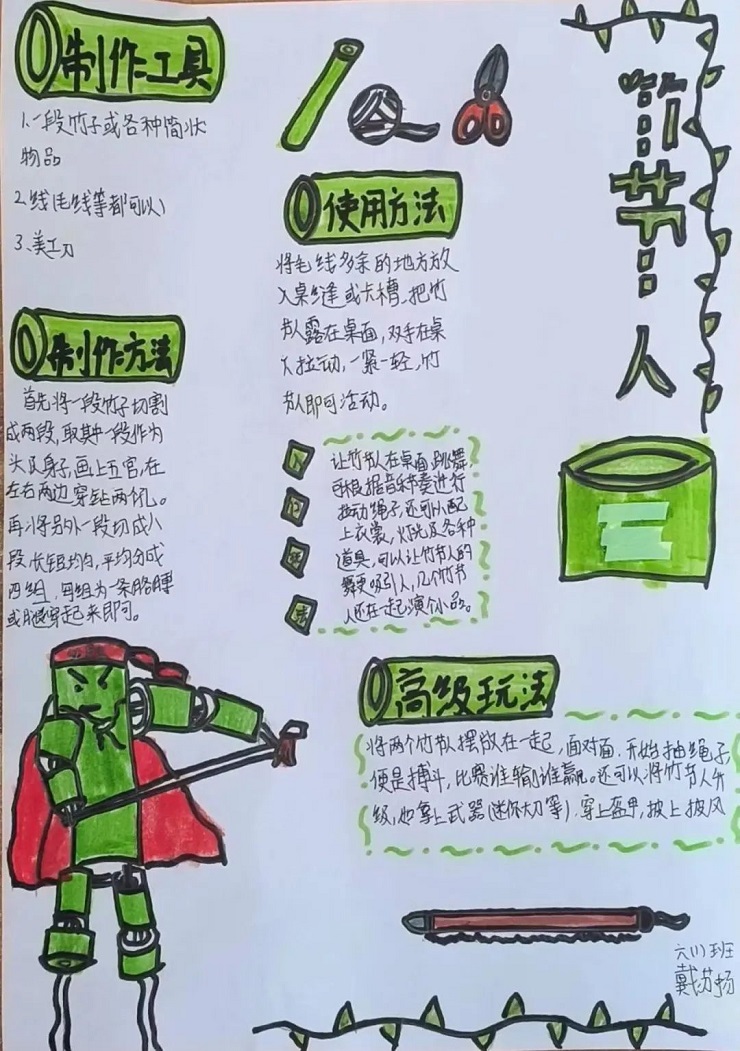 竹节人
制作工具
1.一段竹子或各种筒状
物品
2.线(毛线等都可以)
3.美工刀
制作方法
首先将一段竹子切割
成两段,取其中一段作为
头及身子,画上五官,在
左右两边穿钻两个孔。
再将另外一段切成八
段,长短均匀,平均分成
四组,每组为一条胳膊
或腿穿起来即可。
使用方法
将毛线多余的地方放
入桌缝或卡槽,把竹
节人露在桌面,双手在桌
下拉动,一紧一轻,竹
节人即可活动。
让竹节人在桌面跳舞,
可根据音乐节奏进行
拉动绳子,还可以配
上衣裳,灯光及各种
道具,可以让竹节人的
舞更吸引人,几个竹节
人还在一起演个小品。
高级玩法
将两个竹节人摆放在一起,面对面,开始抽绳子
便是搏斗,比赛谁输谁赢。还可以将竹节人升
级,也拿上武器(迷你大刀等),穿上盔甲,披上披风
六(1)班